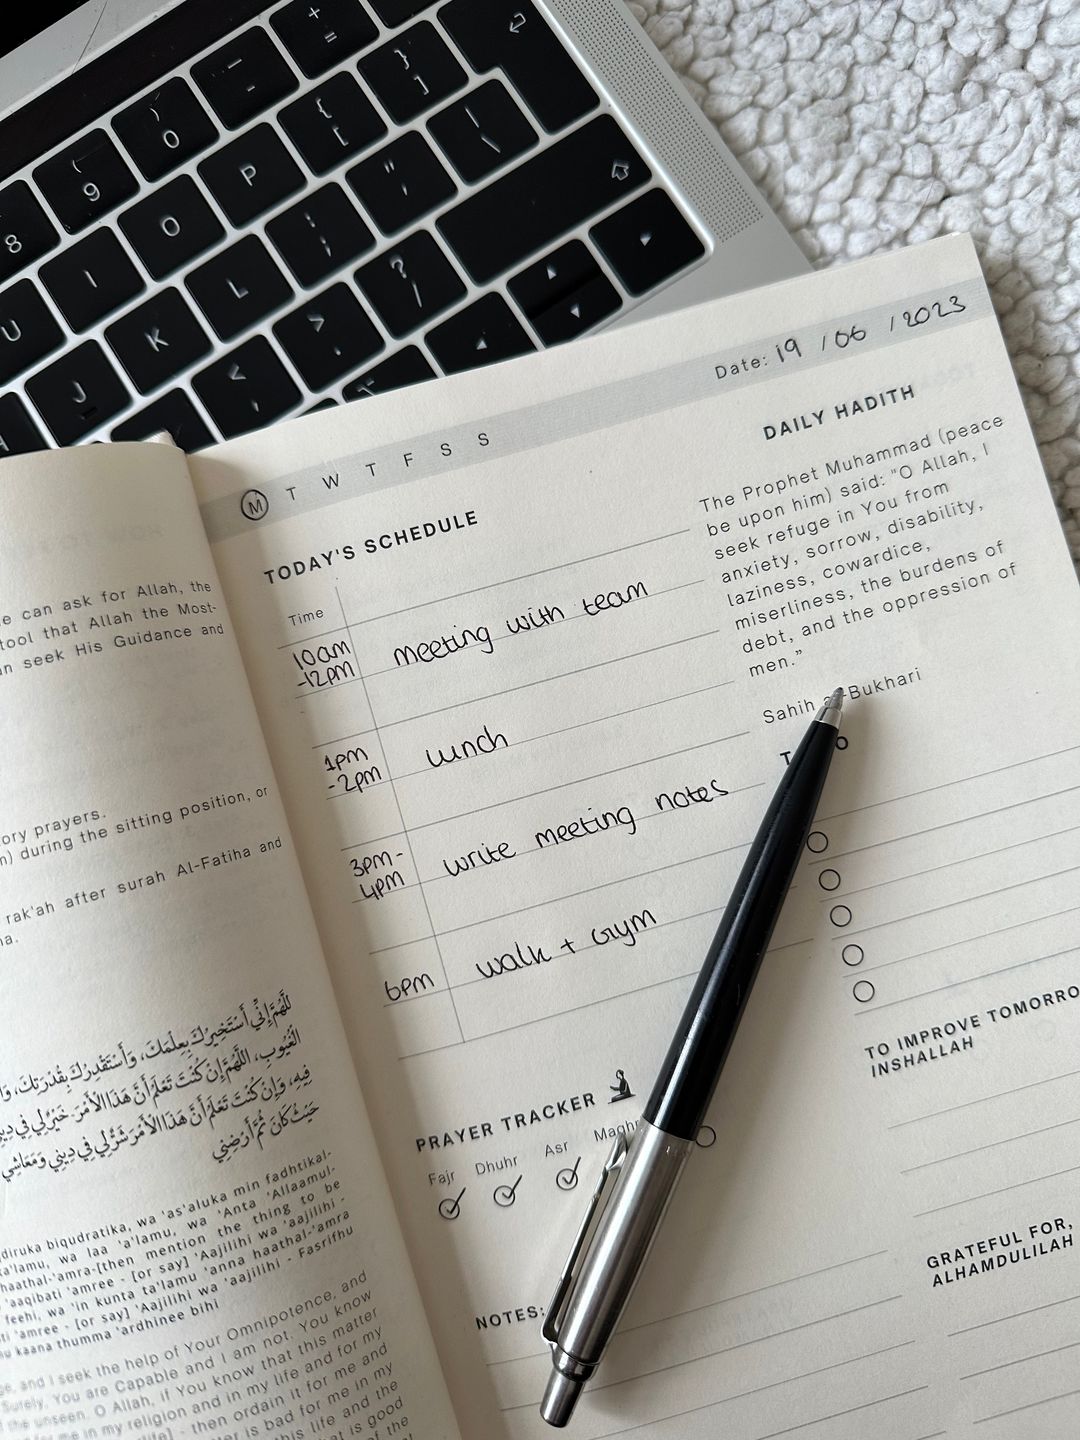 +
=
-
}
]
)
0
{
[
|
\
(
9
P
"
'
8
O
:
;
I
L
?
/
U
K
>
J
<
Date: 19 / 06 / 2023
M T W T F S S
DAILY HADITH
The Prophet Muhammad (peace
be upon him) said: "O Allah, I
seek refuge in You from
anxiety, sorrow, disability,
laziness, cowardice,
miserliness, the burdens of
debt, and the oppression of
men."
Sahih al-Bukhari
TODAY'S SCHEDULE
Time
10am
-12pm
meeting with team
1pm
-2pm
lunch
3pm-
4pm
write meeting notes
6pm
walk + Gym
TO IMPROVE TOMORRO
INSHALLAH
PRAYER TRACKER
Fajr Dhuhr Asr Magh
NOTES:
GRATEFUL FOR,
ALHAMDULILAH
can ask for Allah, the
tool that Allah the Most-
seek His Guidance and
ory prayers.
during the sitting position, or
rak'ah after surah Al-Fatiha and
اللَّهُمَّ إِنِّي أَسْتَخِيرُكَ بِعِلْمِكَ، وَأَسْتَقْدِرُكَ بِقُدْرَتِكَ،
الْغُيُوبِ، اللَّهُمَّ إِنْ كُنْتَ تَعْلَمُ أَنَّ هَذَا الْأَمْرَ خَيْرٌ لِي فِي
فِيهِ، وَإِنْ كُنْتَ تَعْلَمُ أَنَّ هَذَا الْأَمْرَ شَرٌّ لِي فِي دِينِي وَمَعَاشِي
حَيْثُ كَانَ ثُمَّ أَرْضِنِي
diruka biqudratika, wa 'as'aluka min fadhtikal-
ta'lamu, wa laa 'a'lamu, wa 'Anta 'Allaamul-
haathal-'amra-[then mention the thing to be
'aaqibati 'amree - [or say] 'Aajilihi wa 'aajilihi -
feehi, wa 'in kunta ta'lamu 'anna haathal-'amra
'amree - [or say] 'Aajilihi wa 'aajilihi - Fasrifhu
kaana thumma 'ardhinee bihi
and I seek the help of Your Omnipotence, and
Surely, You are Capable and I am not. You know
the unseen. O Allah, if You know that this matter
for me in my religion and in my life and for my
life] - then ordain it for me and
is bad for me in my
this life and the
what is good
of the